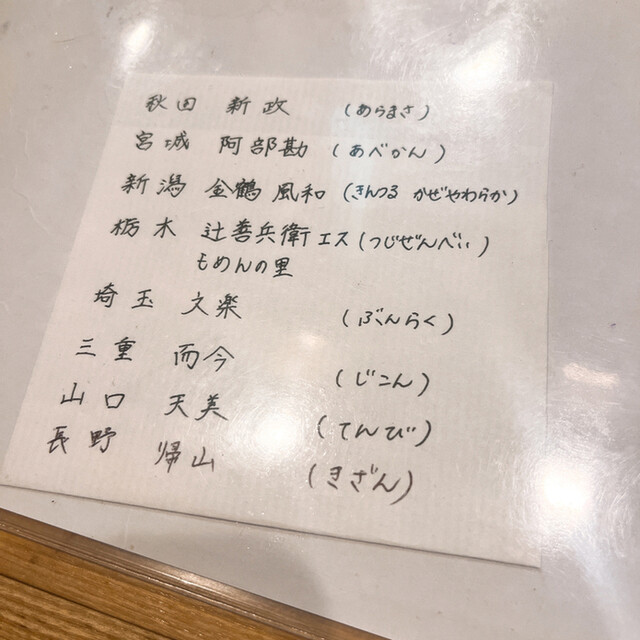 秋田 新政 (あらまさ)
宮城 阿部勘 (あべかん)
新潟 金鶴 風和 (きんつる かぜやわらか)
栃木 辻善兵衛 エス (つじぜんべい)
もめんの里
埼玉 文楽 (ぶんらく)
三重 而今 (じこん)
山口 天美 (てんび)
長野 帰山 (きざん)